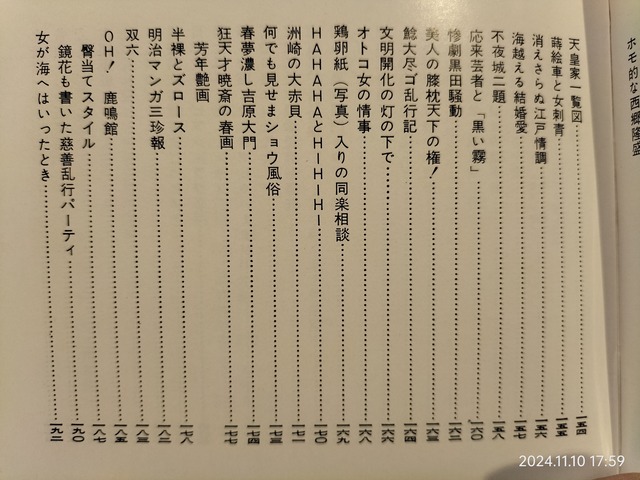 ホモ的な西郷隆盛
天皇家一覧図 一五四
蒔絵車と女刺青 一五五
消えさらぬ江戸情調 一五六
海越える結婚愛 一五七
不夜城二題 一五八
応来芸者と「黒い霧」 一六〇
惨劇黒田騒動 一六二
美人の膝枕天下の権! 一六三
鯰大尽ゴ乱行記 一六四
文明開化の灯の下で 一六六
オトコ女の情事 一六八
鶏卵紙(写真)入りの同楽相談 一六九
HAHAHAとHIHIHI 一七〇
洲崎の大赤貝 一七一
何でも見せまショウ風俗 一七三
春夢濃し吉原大門 一七四
狂天才暁斎の春画 一七七
芳年艶画
半裸とズロース 一七八
明治マンガ三珍報 一八二
双六 一八三
OH! 鹿鳴館 一八五
臀当てスタイル 一八七
鏡花も書いた慈善乱行パーティ 一九〇
女が海へはいったとき 一九二
2024.11.10 17:59